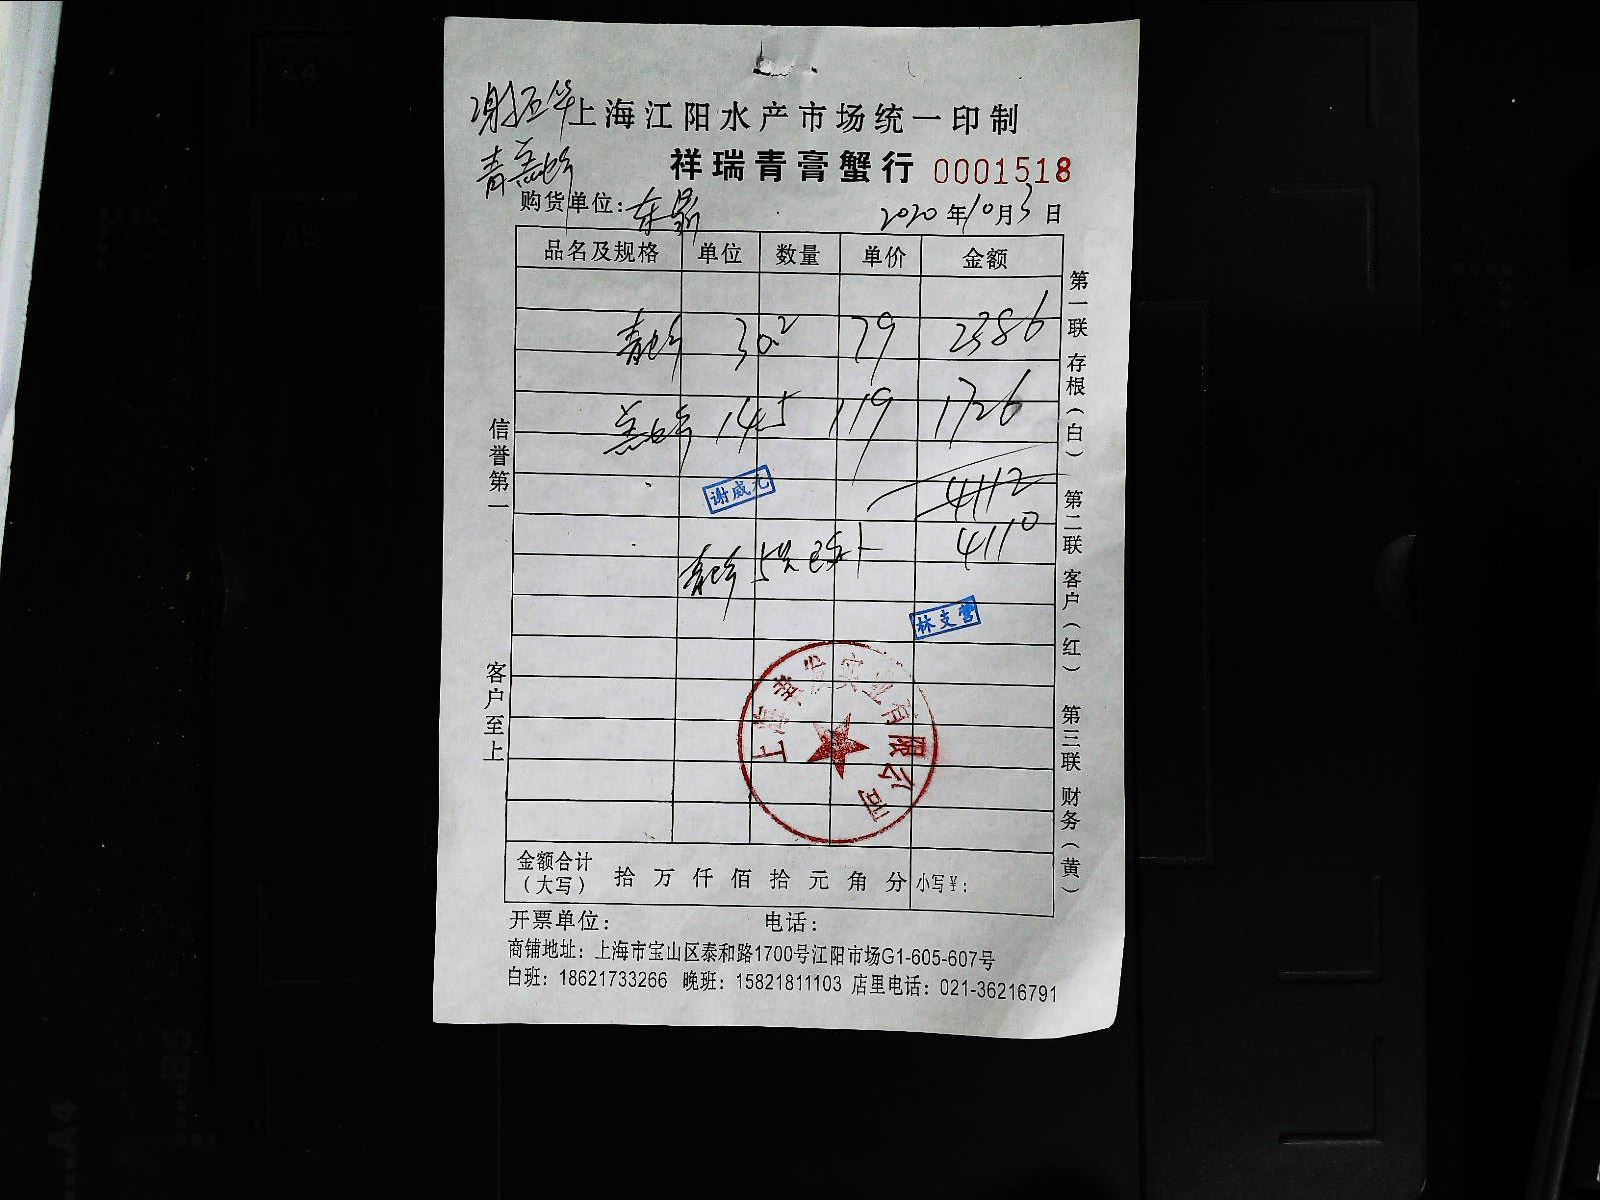 上海江阳水产市场统一印制
祥瑞青膏蟹行 0001518
购货单位：
2020年10月3日
品名及规格 单位 数量 单价 金额
30.2 79 2386
14.5 119 1726
4112
4110
谢威九
林支营
上海 实业有限公司
信誉第一
客户至上
第一联 存根（白）
第二联 客户（红）
第三联 财务（黄）
金额合计（大写） 拾 万 仟 佰 拾 元 角 分 小写¥：
开票单位： 电话：
商铺地址：上海市宝山区泰和路1700号江阳市场G1-605-607号
白班：18621733266 晚班：15821811103 店里电话：021-36216791
A4
BS